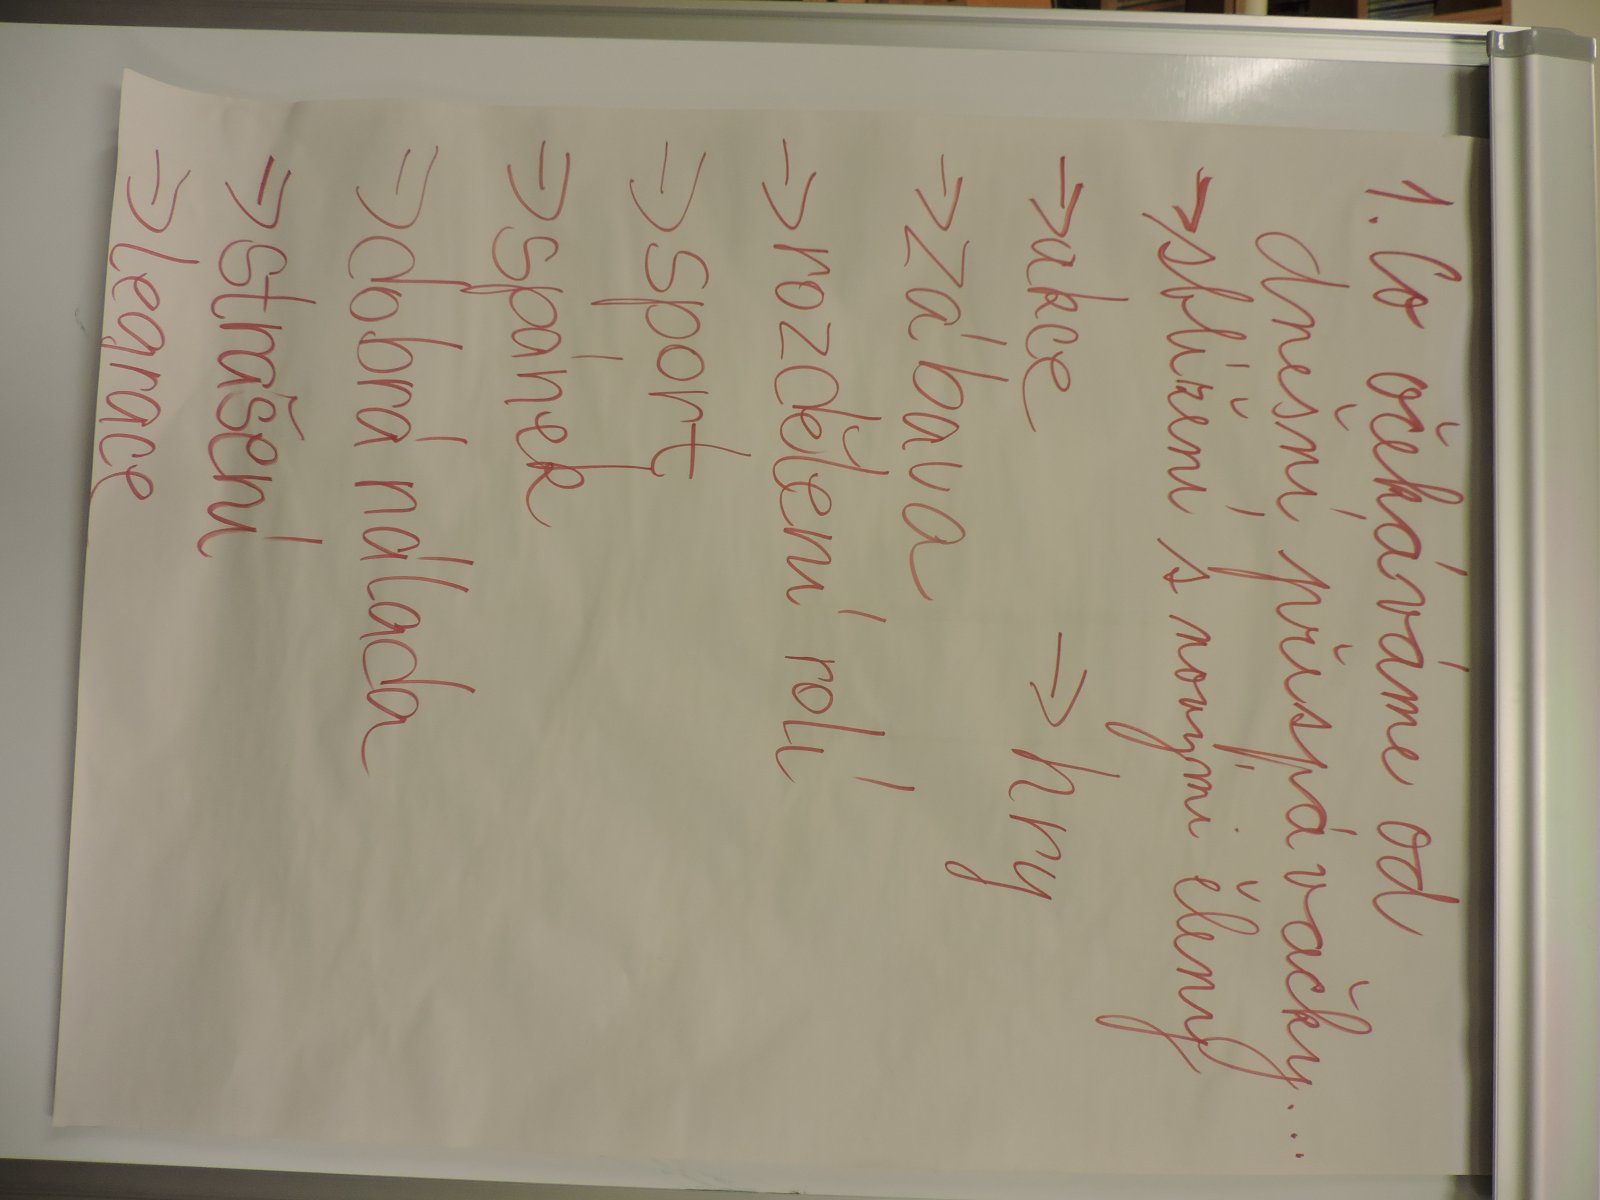 1. Co očekáváme od
dnešní přispávačky...
→ sblížení s novými členy
→ akce → hry
→ zábava
→ rozdělení rolí
→ sport
→ spánek
→ dobrá nállada
→ strašení
→ legrace